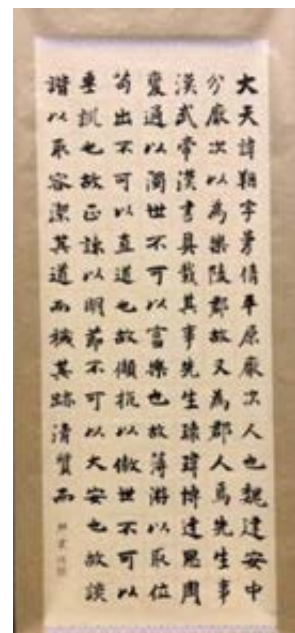 大夫諱朔字曼倩平原厭次人也魏建安中
分厭次以為樂陵郡故又為郡人焉先生事
漢武帝漢書具載其事先生瑰瑋博達思周
變通以濁世不可以富樂也故薄游以取位
苟出不可以直道也故頡抗以傲世不可以
垂訓也故正諫以明節不可以久安也故詼
諧以取容潔其道而穢其跡清質而